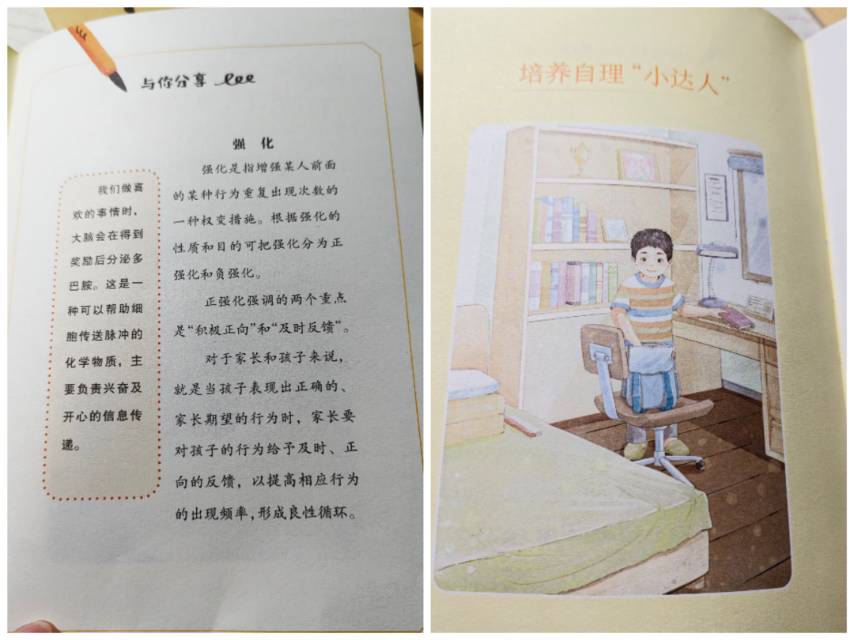 与你分享
强 化
强化是指增强某人前面
的某种行为重复出现次数的
一种权变措施。根据强化的
性质和目的可把强化分为正
强化和负强化。
正强化强调的两个重点
是“积极正向”和“及时反馈”。
对于家长和孩子来说，
就是当孩子表现出正确的、
家长期望的行为时，家长要
对孩子的行为给予及时、正
向的反馈，以提高相应行为
的出现频率，形成良性循环。
我们做喜
欢的事情时，
大脑会在得到
奖励后分泌多
巴胺。这是一
种可以帮助细
胞传送脉冲的
化学物质，主
要负责兴奋及
开心的信息传
递。
培养自理“小达人”